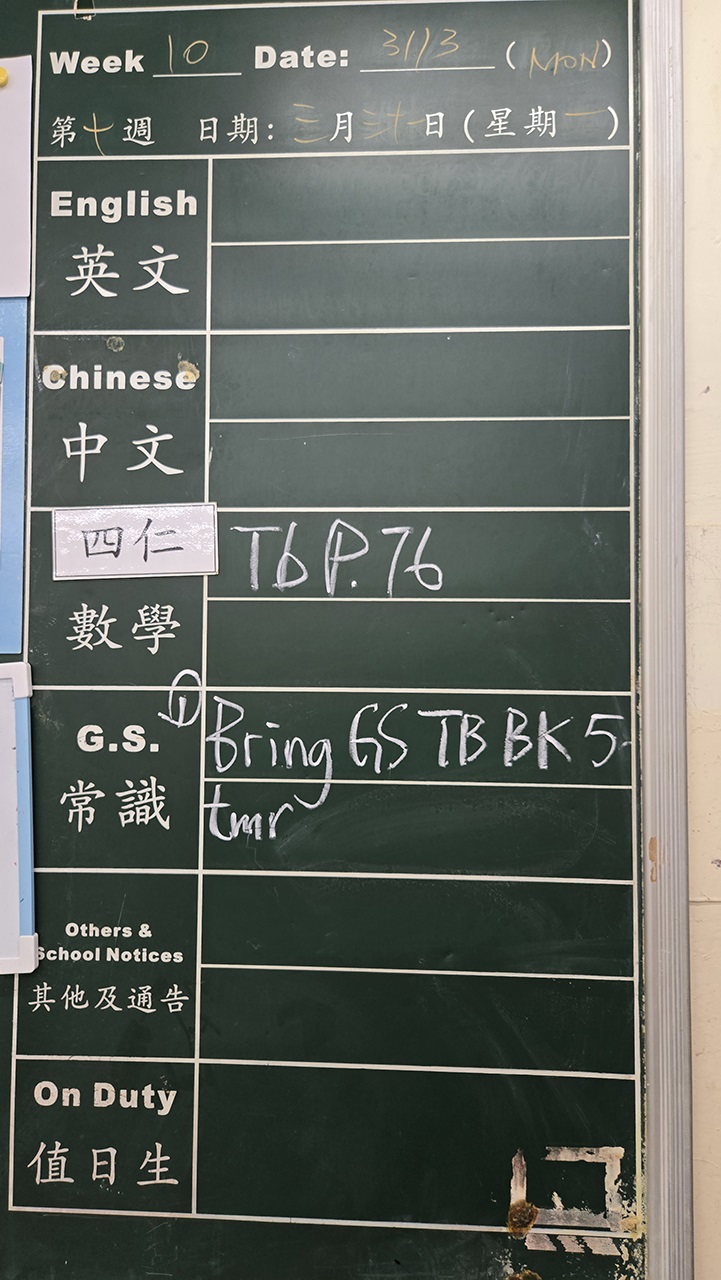 Week 10 Date: 31/3 (MON)
第十週 日期: 三月三十一日(星期一)
English
英文
Chinese
中文
四仁 Tb P.76
數學
G.S. ① Bring GS TB BK 5
常識 tmr
Others &
School Notices
其他及通告
On Duty
值日生